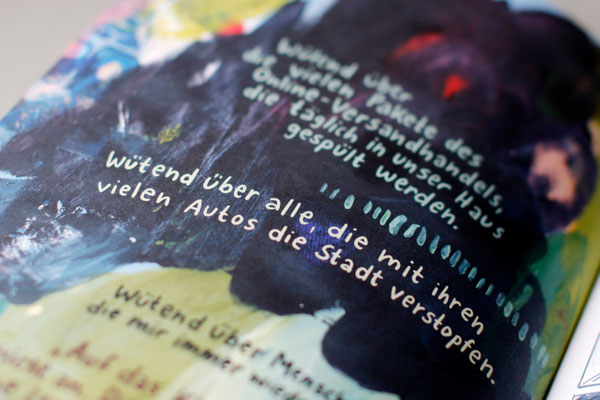 Wütend über
die vielen Pakete des
Online-Versandhandels,
die täglich in unser Haus
gespült werden.
Wütend über alle, die mit ihren
vielen Autos die Stadt verstopfen.
Wütend über Mensch
die mir immer wied
„Auf das
an. D